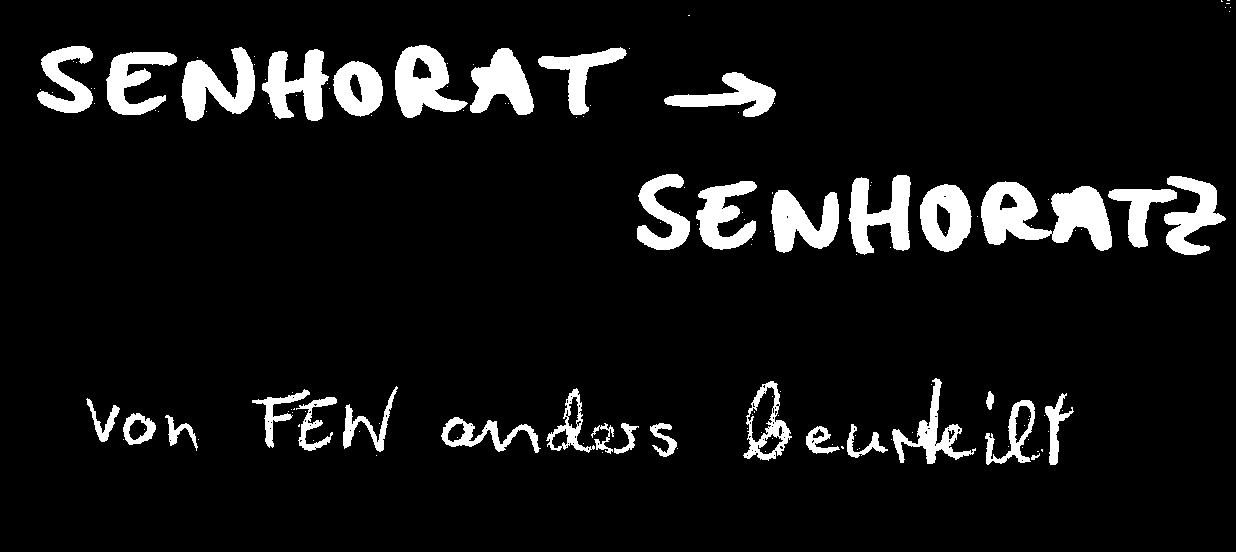 SENHORAT →
SENHORATZ
von FEW anders beurteilt